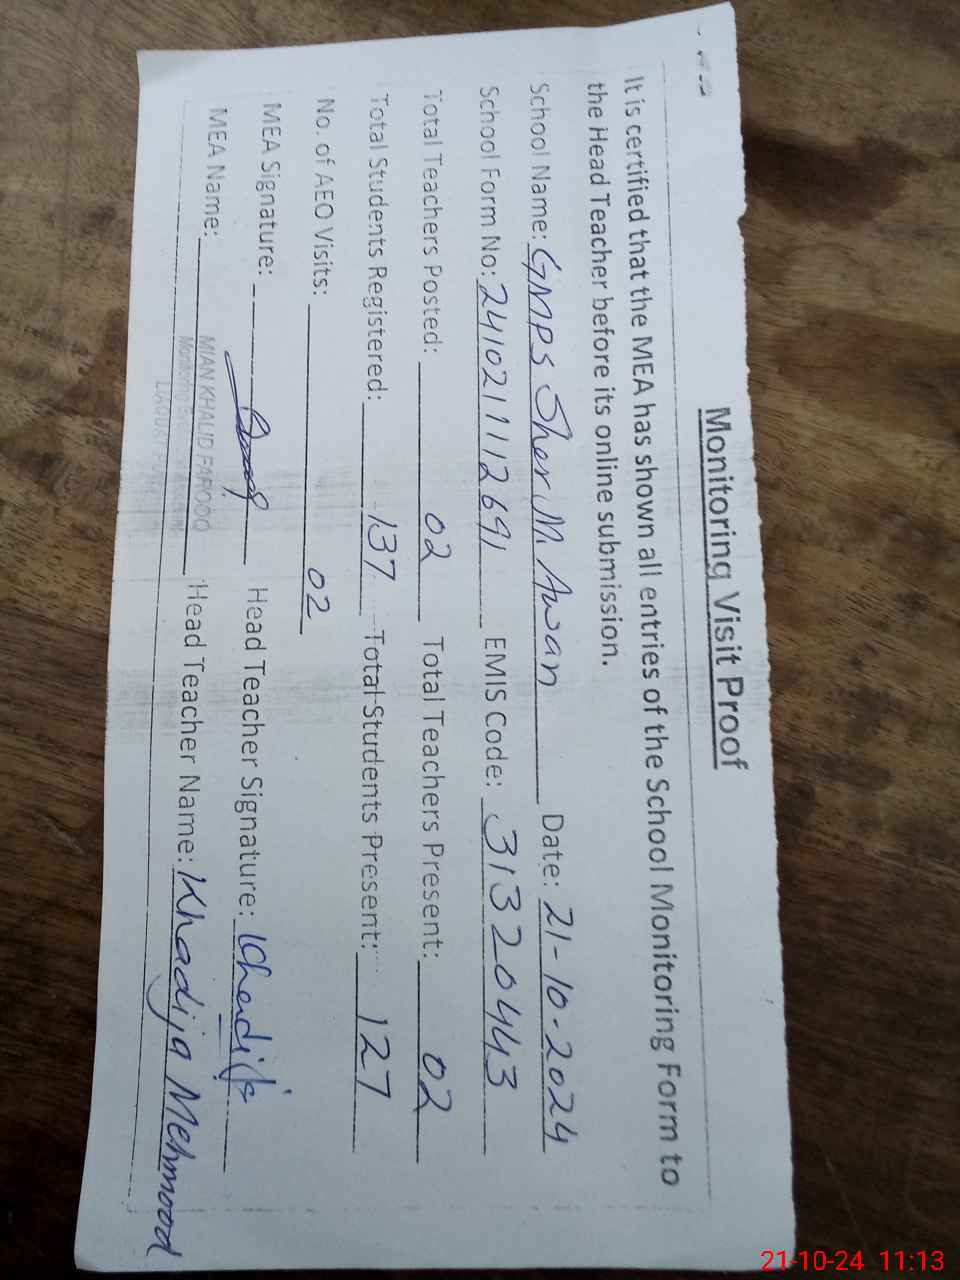 Monitoring Visit Proof
It is certified that the MEA has shown all entries of the School Monitoring Form to
the Head Teacher before its online submission.
School Name: GMPS Sher M. Awan Date: 21-10-2024
School Form No: 241021112691 EMIS Code: 31320443
Total Teachers Posted: 02 Total Teachers Present: 02
Total Students Registered: 137 Total Students Present: 127
No. of AEO Visits: 02
MEA Signature: Head Teacher Signature: Khadija
MEA Name: MIAN KHALID FAROOQ Head Teacher Name: Khadija Mehmood
Monitoring
21-10-24 11:13